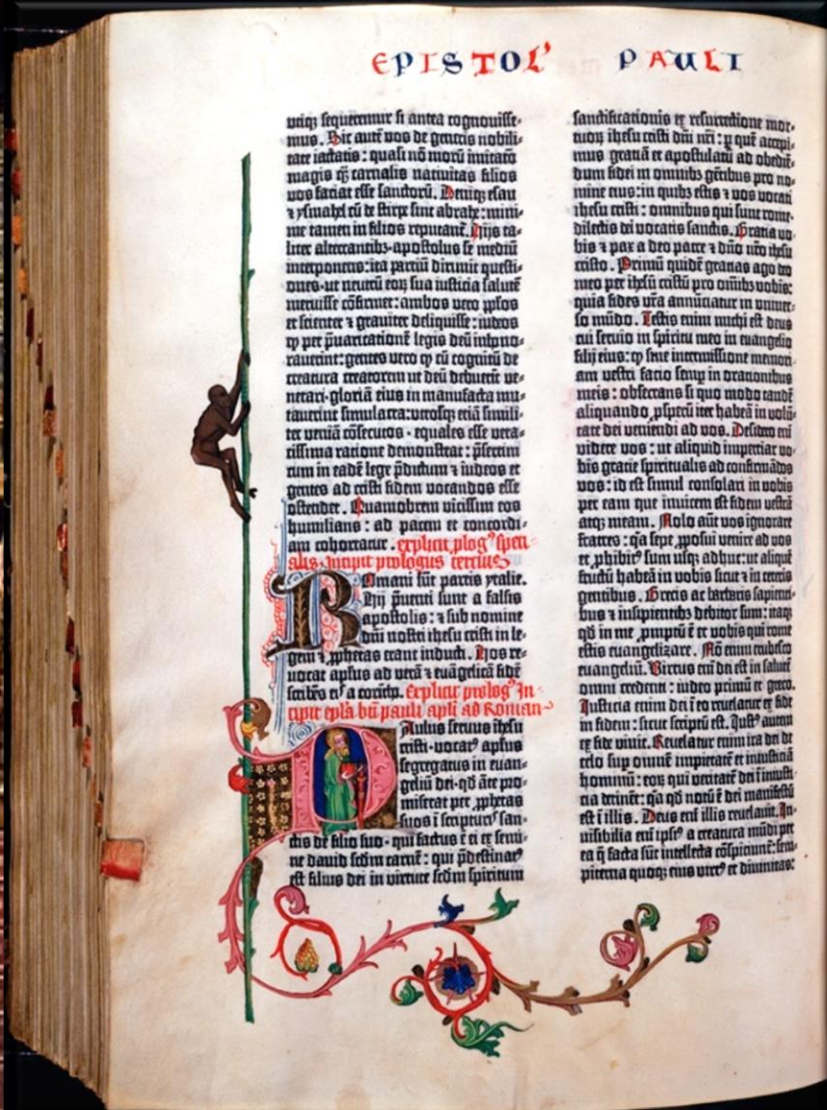 EPISTOL' PAULI
utiq; sequeremur si antea cognovisse-
mus. Sic autē vos de gentis nobili-
tate iactatis: quasi nō morū imitatio
magis q̄ carnalis nativitas filios
vos faciat esse sanctorū. Deniq; esau
⁊ ysmahel cū de stirpe sint abrahe: mini-
me tamen in filios reputantᷓ. Hijs ta-
liter altercantibȝ. apostolus se mediū
interponens: ita partiū dirimit questi-
ones. ut neutrū eoꝝ sua iusticia salutē
meruisse cōfirmet: ambos vero pplos
et scienter ⁊ graviter deliquisse: iudeos
ꝙ per p̄varicationē legis deū inhono-
raverint: gentes vero ꝙ cū cognitū de
creatura creatorem ut deū debuerit ve-
nerari. gloriā eius in manufacta mu-
taverint simulacra: utrosq; etiā simili-
ter veniā cōsecutos. equales esse vera-
cissima ratione demonstrat: p̄sertim
cum in eadē lege p̄dictum ⁊ iudeos et
gentes ad cristi fidem vocandos esse
ostendit. Quamobrem vicissim eos
humilians: ad pacem et concordi-
am cohortatur. explicit plogꝰ speci-
alis. incipit prologus tercius
Romani sūt partis ytalie.
Hij p̄venti sunt a falsis
apostolis: ⁊ sub nomine
dn̄i nostri ihesu cristi in le-
gem ⁊ pphetas erant inducti. Hos re-
vocat apl̄us ad verā ⁊ euāgelicā fidē
scribēs eiˢ a corītho. Explicit prologꝰ In-
cipit epl̄a bt̄i pauli apl̄i ad Roman
Paulus servus ihesu
cristi. vocatꝰ apl̄us
segregatus in euan-
geliū dei. qd̄ āte pro-
miserat per pphetas
suos ī scripturˢ san-
ctis de filio suo. qui factus ē ei ex semi-
ne david scd̄m carnē: qui p̄destinatꝰ
est filius dei in virtute scd̄m spiritum
sanctificationis ex resurrectione mor-
tuoꝝ ihesu cristi dn̄i nr̄i: p quē accepi-
mus gratiā et apostolatū ad obediē-
dum fidei in omnibȝ gētibus pro no-
mine eius: in quibȝ estis ⁊ vos vocati
ihesu cristi: omnibus qui sunt rome.
dilectis dei vocatis sanctis. Gratia vo-
bis ⁊ pax a deo patre ⁊ dn̄o nr̄o ihesu
cristo. Primū quidē gratias ago deo
meo per ihesū cristū pro om̄ibȝ vobis:
quia fides vr̄a annūciatur in univer-
so mūdo. Testis enim michi est deus
cui servio in spiritu meo in euangelio
filij eius: ꝙ sine intermissione memori-
am vestri facio semp in orationibus
meis: obsecrans si quo modo tandē
aliquando pspeꝝ iter habeā in volū-
tate dei veniendi ad vos. Desidero em̄
videre vos: ut aliquid impertiar vo-
bis gratie spiritualis ad confirmādos
vos: id est simul consolari in vobis
per eam que invicem est fidem vestrā
atq; meam. Nolo aūt vos ignorare
fratres: q̄a sepe pposui venire ad vos
et phibitꝰ sum usq; adhuc: ut aliquē
fructū habeā in vobis sicut ⁊ in ceteris
gentibus. Grecis ac barbaris sapienti-
bus ⁊ insipientibȝ debitor sum: itaq;
qd̄ in me promptū ē et vobis qui rome
estis euangelizare. Nō enim erubesco
euangeliū. Virtus em̄ dei est in salutē
omni credenti: iudeo primū et greco.
Iusticia enim dei ī eo revelatur ex fide
in fidem: sicut scriptū est. Iustꝰ autem
ex fide vivit. Revelatur enim ira dei de
celo sup omnē impietatē et iniusticiā
hominū: eoꝝ qui veritatē dei ī iniusti-
cia detinēt: q̄a qd̄ notū ē dei manifestū
est ī illis. Deus em̄ illis revelavit. In-
visibilia em̄ ipsiꝰ a creatura mūdi per
ea q̄ facta sūt intellecta cōspiciunt᷑: sem-
piterna quoq; eius virtꝰ et divinitas: